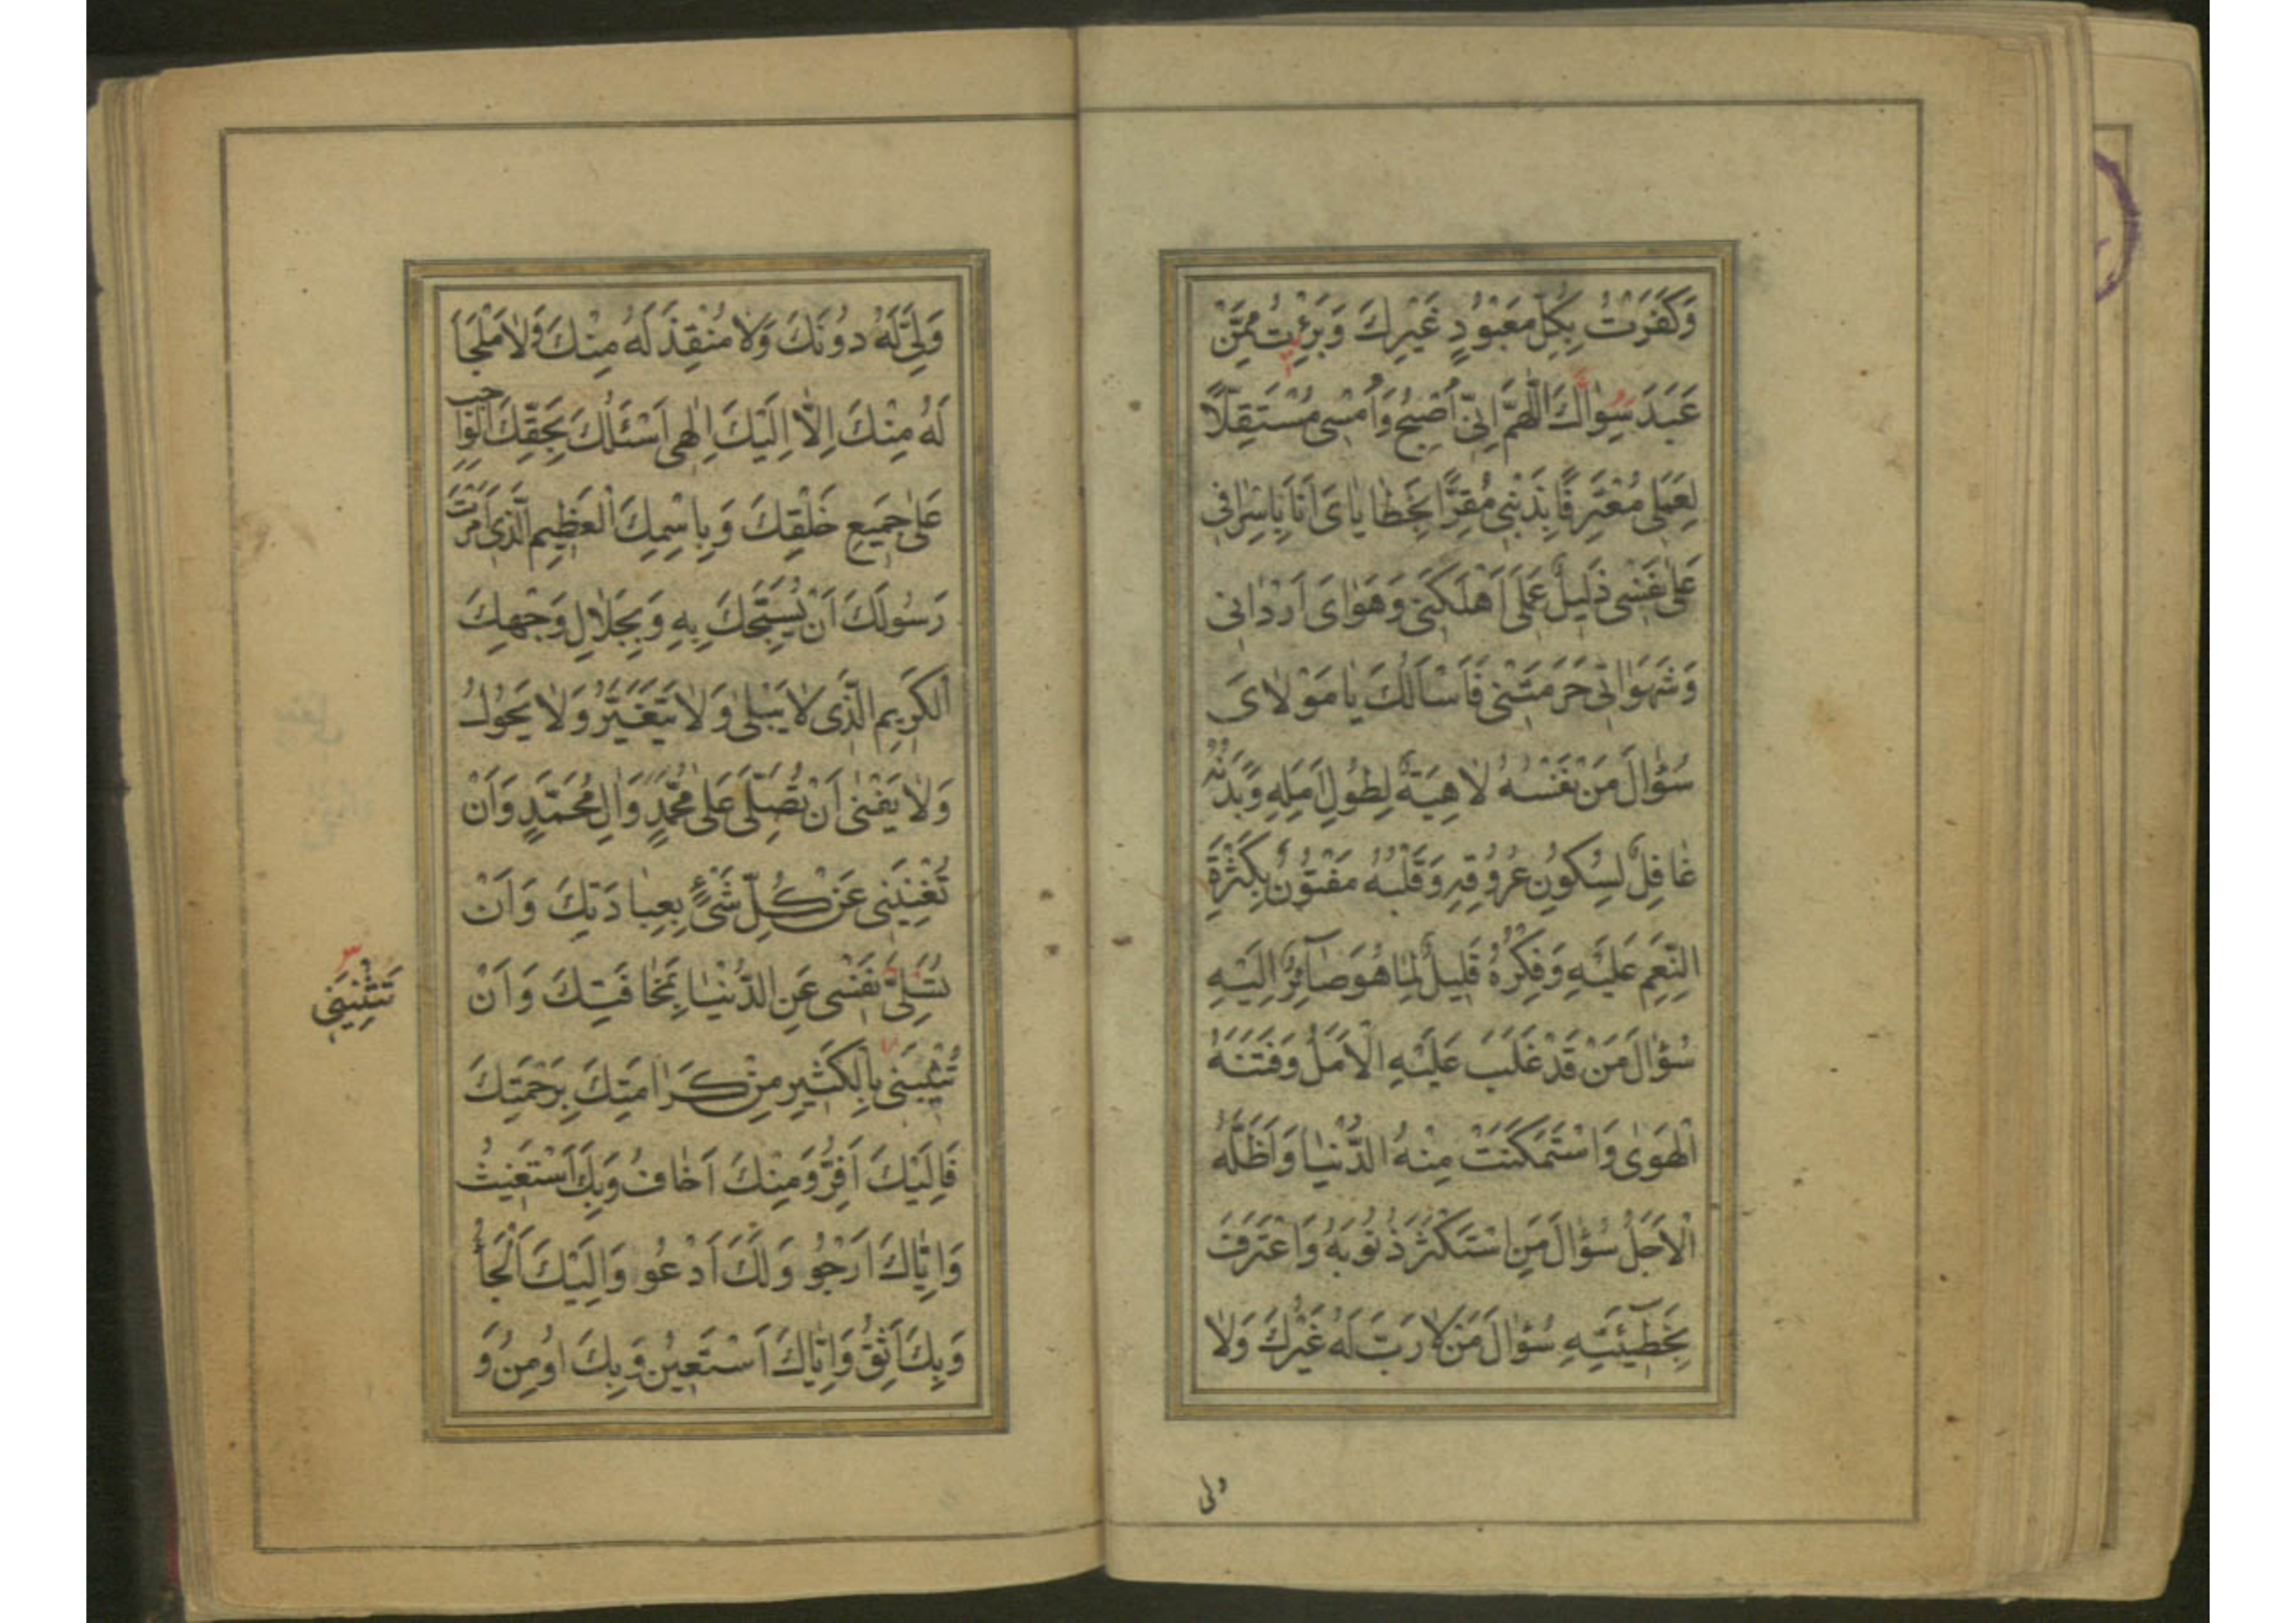 وَكَفَرْتُ بِكُلِّ مَعْبُودٍ غَيْرِكَ وَبَرِئْتُ مِمَّنْ
عَبَدَ سِوٰاكَ اَللّٰهُمَّ اِنّى اُصْبِحُ وَاُمْسى مُسْتَقِلًّا
لِعَمَلى مُعْتَرِفًا بِذَنْبى مُقِرًّا بِخَطٰايٰاىَ اَنَا بِاِسْرٰافى
عَلىٰ نَفْسى ذَليلٌ عَمَلى اَهْلَكَنى وَهَوٰاىَ اَرْدٰانى
وَشَهَوٰاتى حَرَمَتْنى فَاَسْاَلُكَ يٰا مَوْلاٰىَ
سُؤٰالَ مَنْ نَفْسُهُ لاٰهِيَةٌ لِطُولِ اَمَلِهِ وَبَدَنُهُ
غٰافِلٌ لِسُكُونِ عُرُوقِهِ وَقَلْبُهُ مَفْتُونٌ بِكَثْرَةِ
النِّعَمِ عَلَيْهِ وَفِكْرُهُ قَليلٌ لِمٰا هُوَ صٰآئِرٌ اِلَيْهِ
سُؤٰالَ مَنْ قَدْ غَلَبَ عَلَيْهِ الْاَمَلُ وَفَتَنَهُ
الْهَوىٰ وَاسْتَمْكَنَتْ مِنْهُ الدُّنْيٰا وَاَظَلَّهُ
الْاَجَلُ سُؤٰالَ مَنِ اسْتَكْثَرَ ذُنُوبَهُ وَاعْتَرَفَ
بِخَطٓيئَتِهِ سُؤٰالَ مَنْ لاٰ رَبَّ لَهُ غَيْرُكَ وَلاٰ
ولى
وَلِىَّ لَهُ دُونَكَ وَلاٰ مُنْقِذَ لَهُ مِنْكَ وَلاٰ مَلْجَاَ
لَهُ مِنْكَ اِلّاٰ اِلَيْكَ اِلٰهى اَسْئَلُكَ بِحَقِّكَ الْوٰاجِبِ
عَلىٰ جَميعِ خَلْقِكَ وَبِاسْمِكَ الْعَظيمِ الَّذى اَمَرْتَ
رَسُولَكَ اَنْ يُسَبِّحَكَ بِهِ وَبِجَلاٰلِ وَجْهِكَ
الْكَريمِ الَّذى لاٰ يَبْلىٰ وَلاٰ يَتَغَيَّرُ وَلاٰ يَحُولُ
وَلاٰ يَفْنىٰ اَنْ تُصَلِّىَ عَلىٰ مُحَمَّدٍ وَاٰلِ مُحَمَّدٍ وَاَنْ
تُغْنِيَنى عَنْ كُلِّ شَىْءٍ بِعِبٰادَتِكَ وَاَنْ
تُسَلِّىَ نَفْسى عَنِ الدُّنْيٰا بِمَخٰافَتِكَ وَاَنْ
تَثْنِيَنى
تُثيبَنى بِالْكَثيرِ مِنْ كَرٰامَتِكَ بِرَحْمَتِكَ
فَاِلَيْكَ اَفِرُّ وَمِنْكَ اَخٰافُ وَبِكَ اَسْتَغيثُ
وَاِيّٰاكَ اَرْجُو وَلَكَ اَدْعُو وَاِلَيْكَ اَلْجَأُ
وَبِكَ اَثِقُ وَاِيّٰاكَ اَسْتَعينُ وَبِكَ اُومِنُ وَ